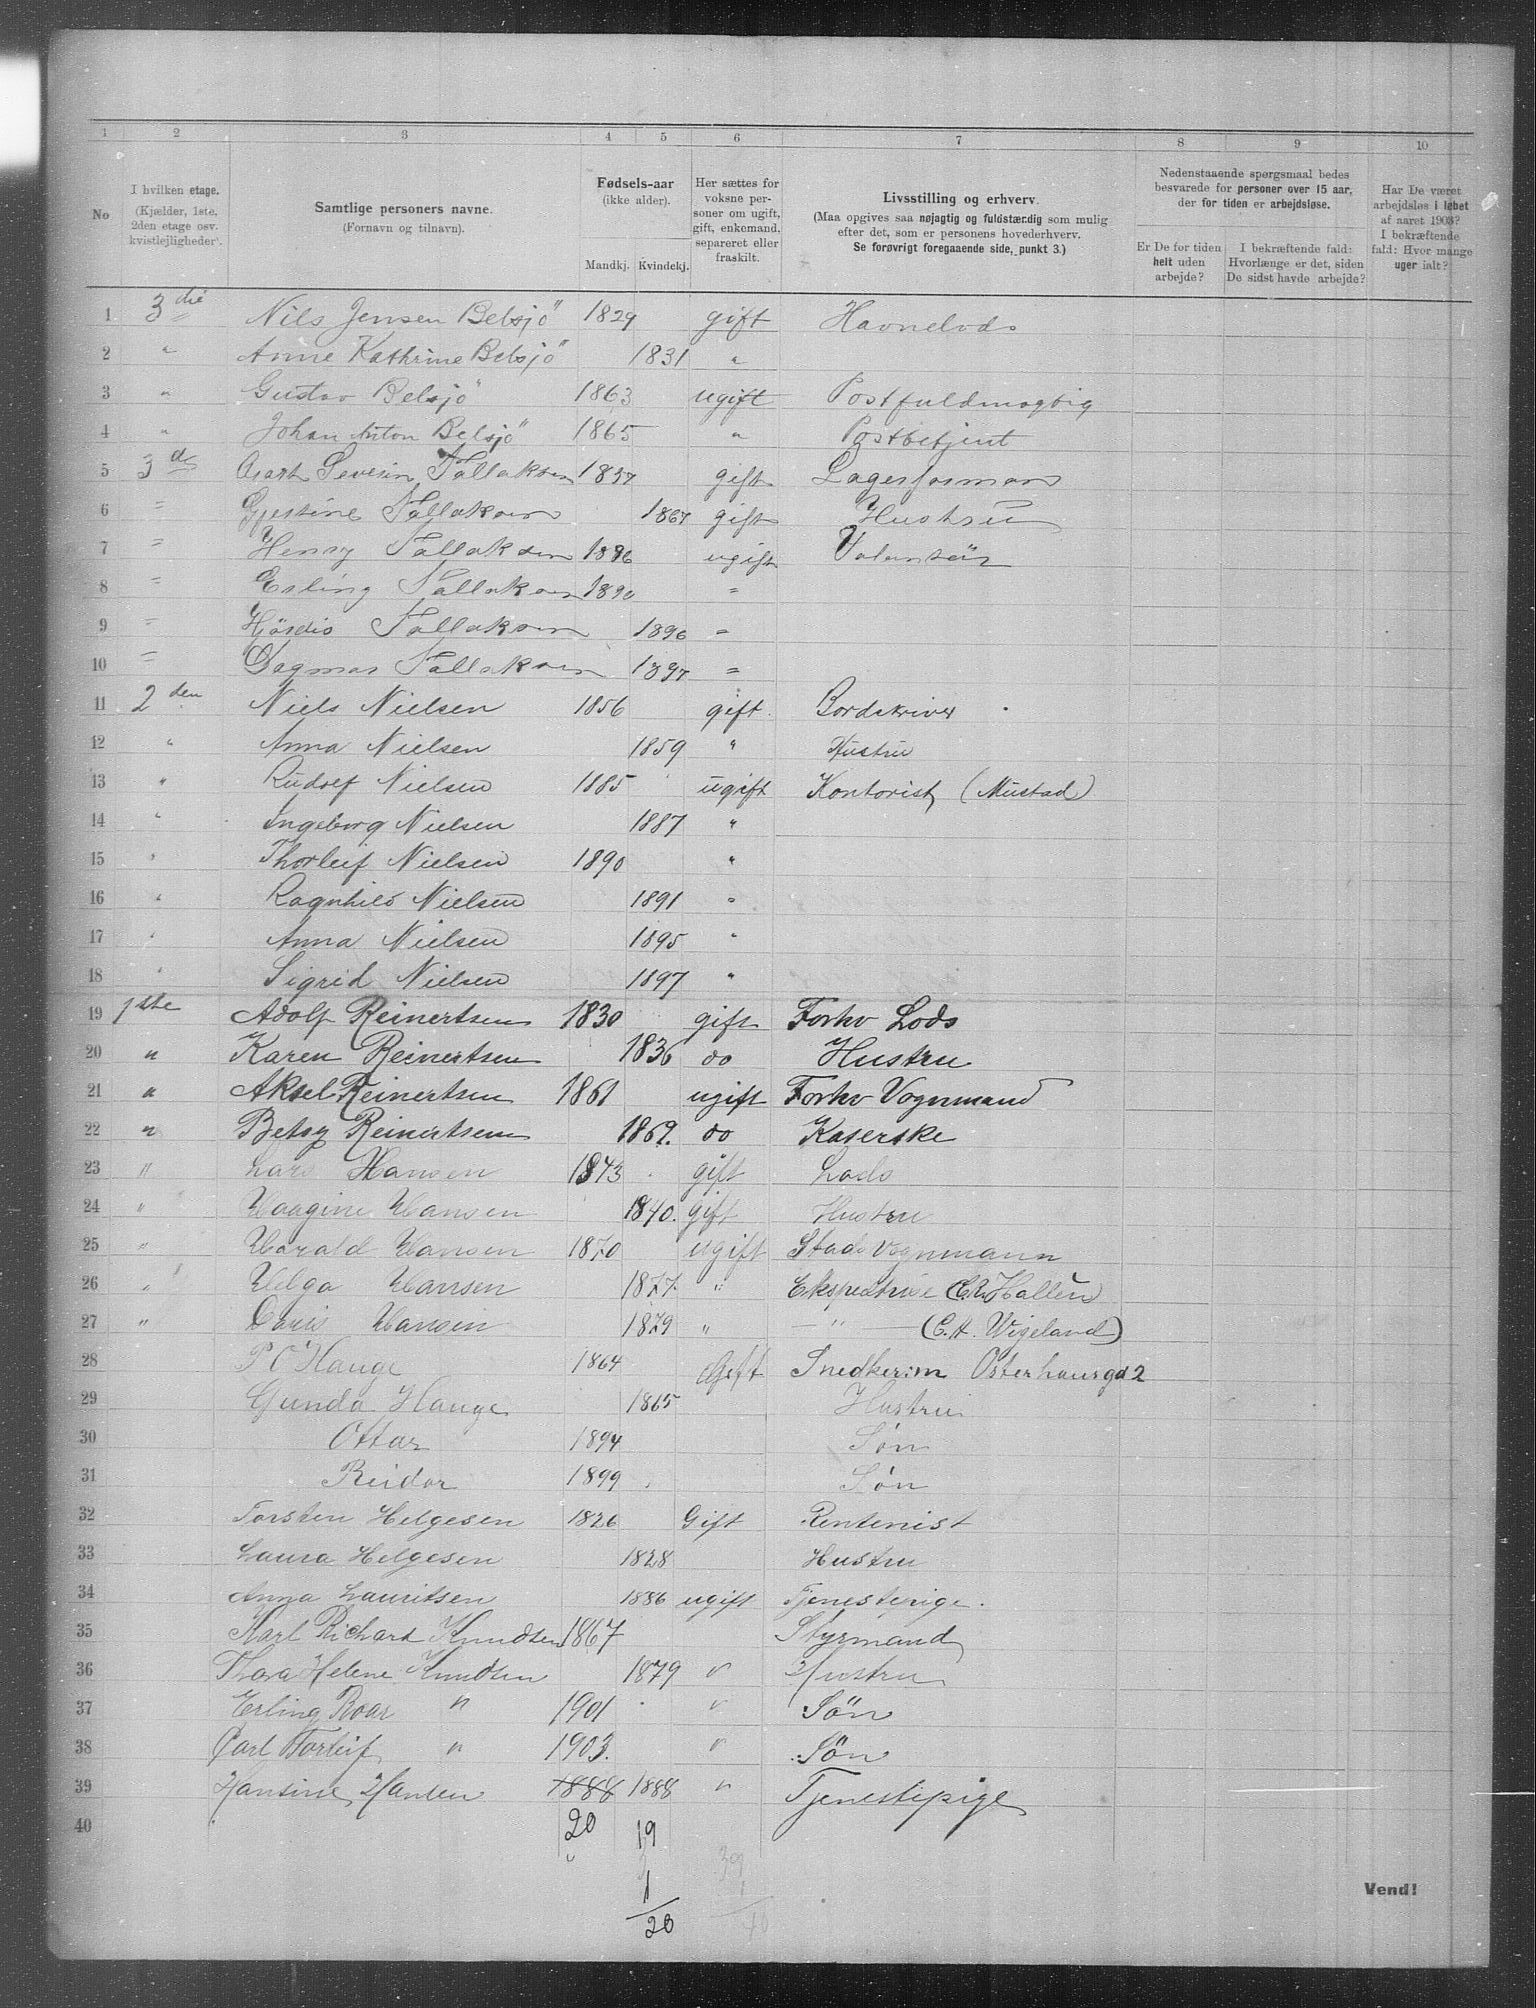 1 2 3 4 5 6 7 8 9 10
No
I hvilken etage.
(Kjælder, 1ste,
2den etage osv.
kvistlejligheder).
Samtlige personers navne.
(Fornavn og tilnavn).
Fødsels-aar
(ikke alder).
Mandkj. Kvindekj.
Her sættes for
voksne per-
soner om ugift,
gift, enkemand,
separeret eller
fraskilt.
Livsstilling og erhverv.
(Maa opgives saa nøjagtig og fuldstændig som mulig
efter det, som er personens hovederhverv.
Se forøvrigt foregaaende side, punkt 3.)
Nedenstaaende spørgsmaal bedes
besvarede for personer over 15 aar,
der for tiden er arbejdsløse.
Er De for tiden
helt uden
arbejde?
I bekræftende fald:
Hvorlænge er det, siden
De sidst havde arbejde?
Har De været
arbejdsløs i løbet
af aaret 1903?
I bekræftende
fald: Hvor mange
uger ialt?
1 3die Nils Jensen Belsjö 1829 gift Havnelods
2 " Anne Kathrine Belsjö 1831 "
3 " Gustav Belsjö 1863 ugift Postfuldmægtig
4 " Johan Anton Belsjö 1865 " Postbetjent
5 3die Severin Tallaksen 1857 gift Lagerformann
6 " Gjestine Tallaksen 1867 gift Hustru
7 " Henry Tallaksen 1886 ugift Volontør
8 " Erling Tallaksen 1890 "
9 " Hjørdis Tallaksen 1896 "
10 " Dagmar Tallaksen 1897 "
11 2den Niels Nielsen 1856 gift. Bordskriver
12 " Anna Nielsen 1859 " Hustru
13 " Rudolf Nielsen 1885 ugift Kontorist (Mustad)
14 " Ingeborg Nielsen 1887 "
15 " Thorleif Nielsen 1890 "
16 " Ragnhild Nielsen 1891 "
17 " Anna Nielsen 1895 "
18 " Sigrid Nielsen 1897 "
19 1ste Adolf Reinertsen 1830 gift Forhv Lods
20 " Karen Reinertsen 1836 do Hustru
21 " Aksel Reinertsen 1861 ugift Forhv Vognmand
22 " Betsy Reinertsen 1869. do Kaserske
23 " Lars Hansen 1843 gift Lods
24 " Haagine Hansen 1840. gift Hustru
25 " Harald Hansen 1870 ugift Stads Vognmann
26 " Helga Hansen 1877 " Ekspeditrise (Hallèn)
27 " Hansen 1879 " — " — (C. H. Wigeland)
28 P O Hauge 1864 Gift Snedkerim Osterhausgd 2
29 Gunda Hauge 1865 Hustru
30 Ottar 1894 Søn
31 Reidar 1899 Søn
32 Torsten Helgesen 1826 Gift Rentenist
33 Laura Helgesen 1828 Hustru
34 Anna Lauritsen 1886 ugift Tjenestepige.
35 Karl Richard Knudsen 1867 Styrmand
36 Thora Helene Knudsen 1879 " Hustru
37 Erling Roar " 1901 " Søn
38 Carl Torleif " 1903. " Søn
39 Hansine Hansen 1888 1888 " Tjenestepige
40
20 19
" 1 39
1
20 40
Vend!